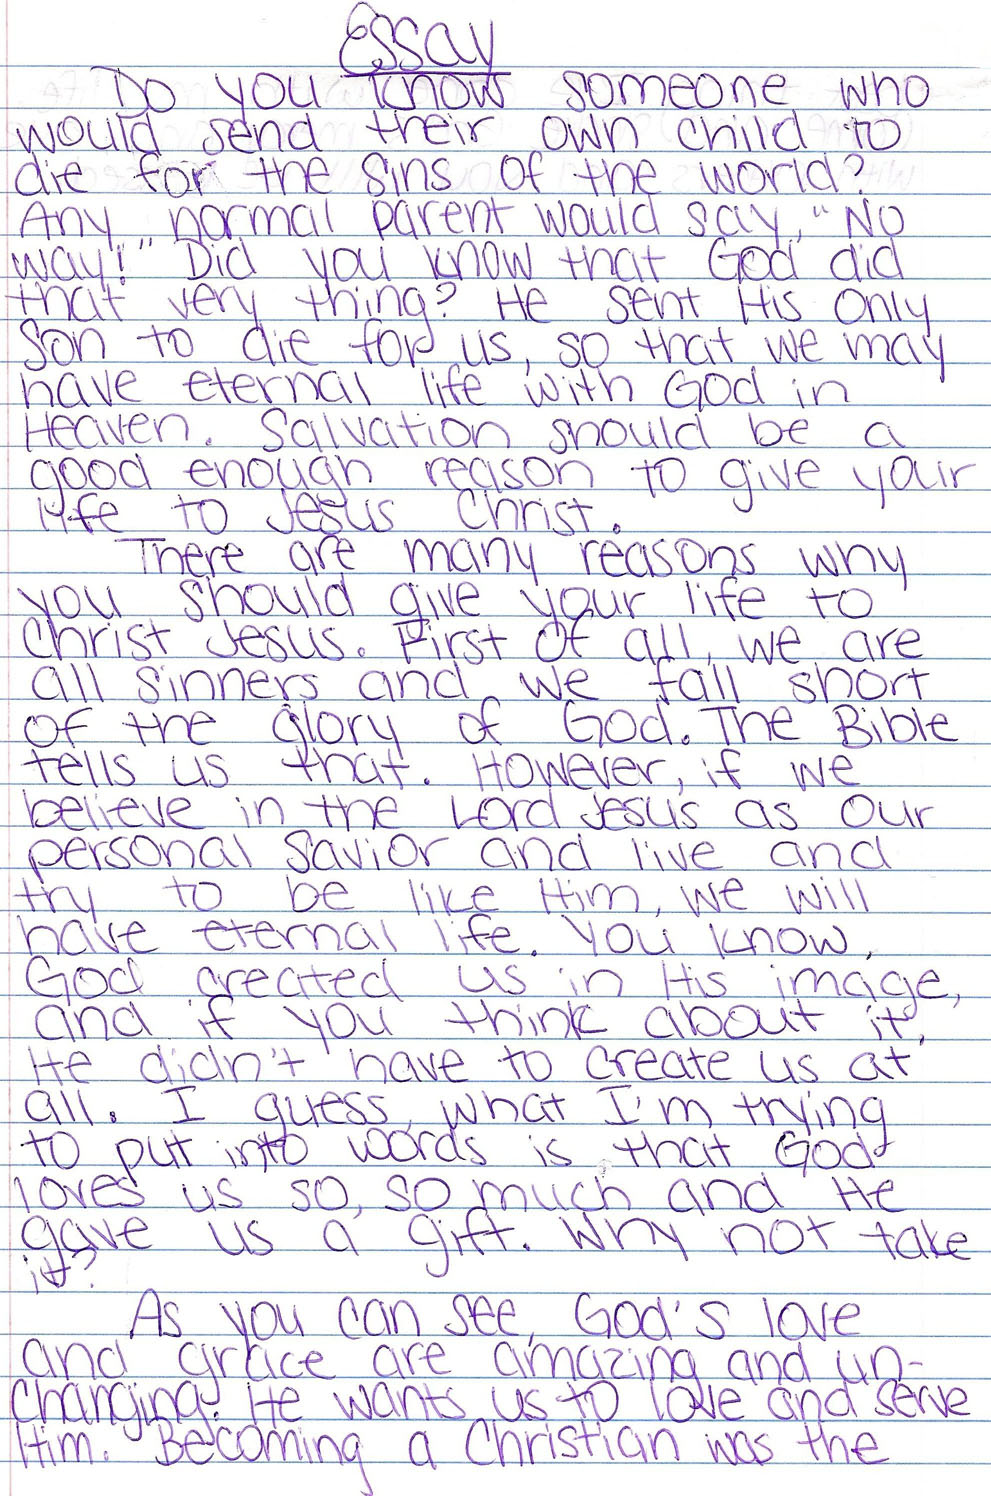 Essay
Do you know someone who
would send their own child to
die for the sins of the world?
Any normal parent would say, "No
way!" Did you know that God did
that very thing? He sent His only
Son to die for us, so that we may
have eternal life with God in
Heaven. Salvation should be a
good enough reason to give your
life to Jesus Christ.
There are many reasons why
you should give your life to
Christ Jesus. First of all, we are
all sinners and we fall short
of the glory of God. The Bible
tells us that. However, if we
believe in the Lord Jesus as our
personal Savior and live and
try to be like Him, we will
have eternal life. You know,
God created us in His image,
and if you think about it,
He didn't have to create us at
all. I guess what I'm trying
to put into words is that God
loves us so, so much and He
gave us a gift. Why not take
it?
As you can see, God's love
and grace are amazing and un-
changing. He wants us to love and serve
Him. Becoming a Christian was the